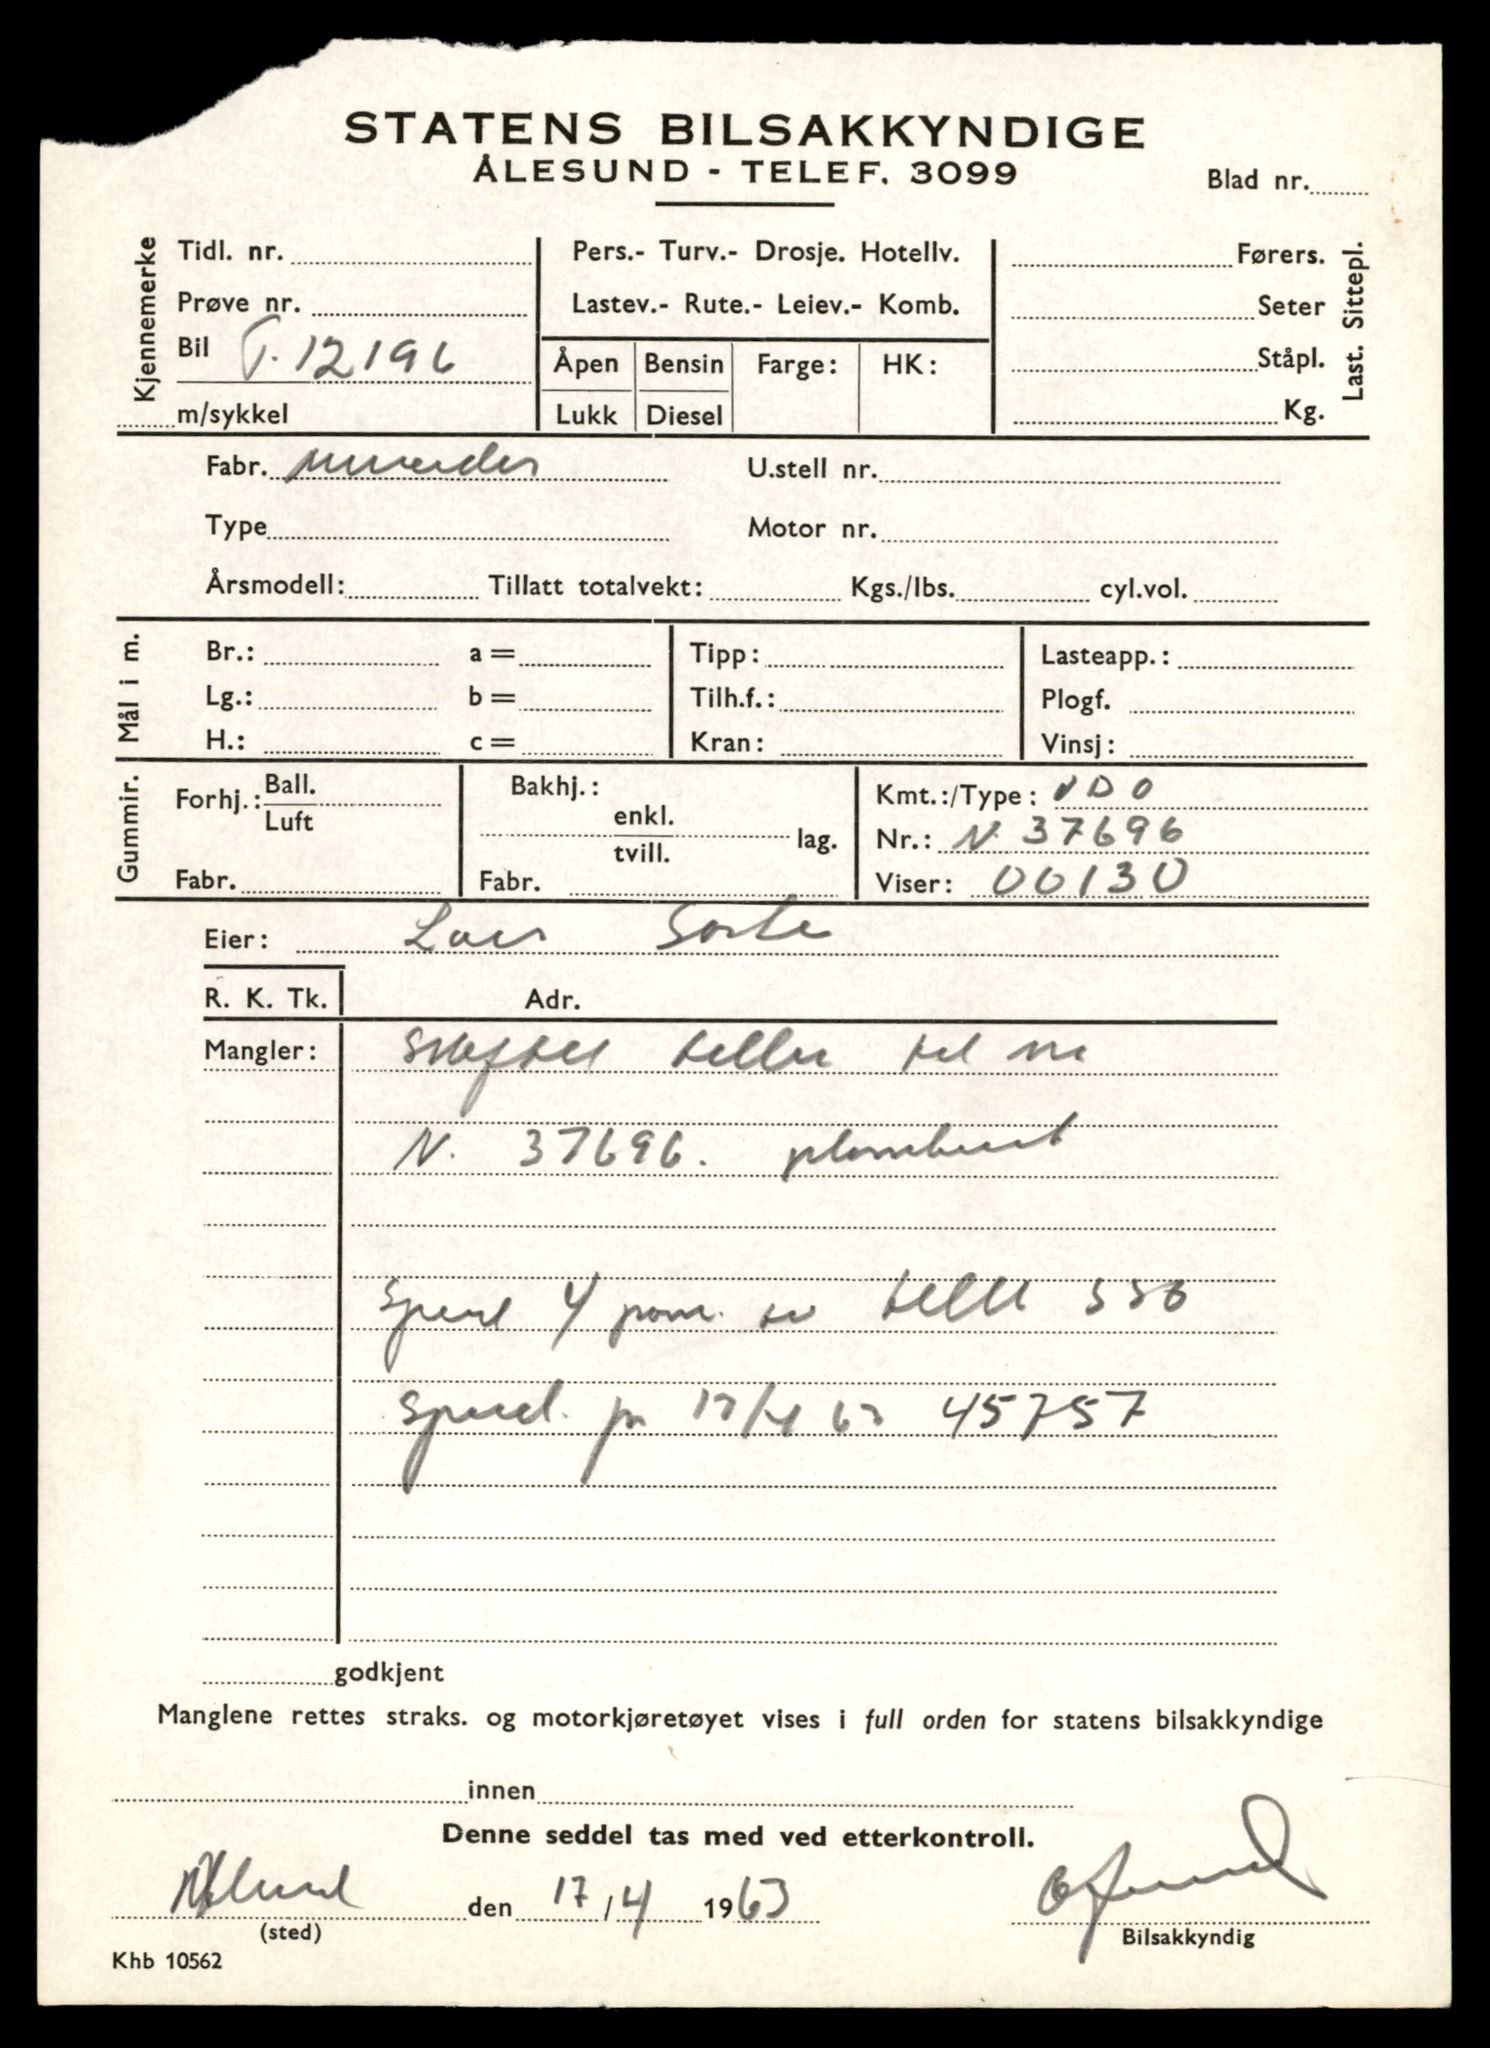 STATENS BILSAKKYNDIGE
ÅLESUND - TELEF. 3099
Blad nr.
Kjennemerke
Tidl. nr.
Prøve nr.
Bil T. 12196
m/sykkel
Pers.- Turv.- Drosje. Hotellv.
Lastev.- Rute.- Leiev.- Komb.
Åpen Bensin Farge: HK:
Lukk Diesel
Førers.
Seter
Ståpl.
Kg.
Last. Sittepl.
Fabr. U.stell nr.
Type Motor nr.
Årsmodell: Tillatt totalvekt: Kgs./lbs. cyl.vol.
Mål i m.
Br.: a = Tipp: Lasteapp.:
Lg.: b = Tilh.f.: Plogf.
H.: c = Kran: Vinsj:
Gummir.
Forhj.: Ball.
Luft
Fabr.
Bakhj.:
enkl.
tvill. lag.
Fabr.
Kmt.:/Type: VDO
Nr.: N. 37696
Viser: 00130
Eier: Lars
R. K. Tk. Adr.
Mangler: teller til
N. 37696. plombert
4
17/4 63 45757
godkjent
Manglene rettes straks. og motorkjøretøyet vises i full orden for statens bilsakkyndige
innen
Denne seddel tas med ved etterkontroll.
den 17/4 1963
(sted)
Bilsakkyndig
Khb 10562